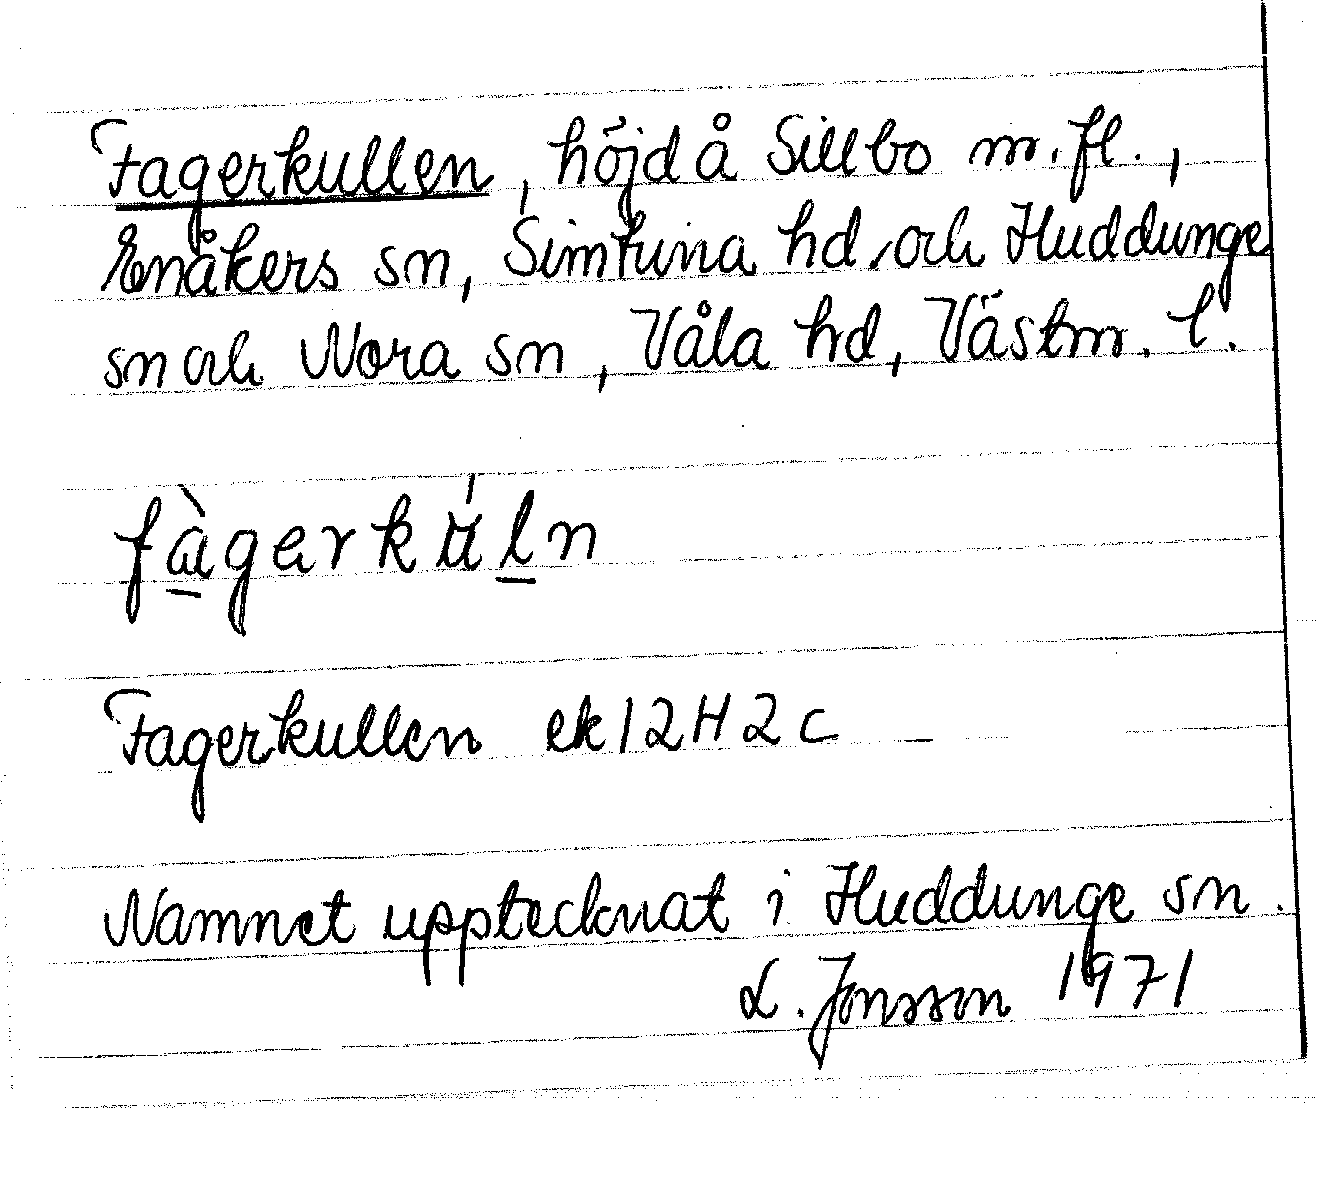 Fagerkullen, höjd å Sillbo m.fl.,
Enåkers sn, Simtuna hd, och Huddunge
sn och Nora sn, Våla hd, Västm. l.
fàgerkuln
Fagerkullen ek 12H2c
Namnet upptecknat i Huddunge sn.
L. Jonsson 1971